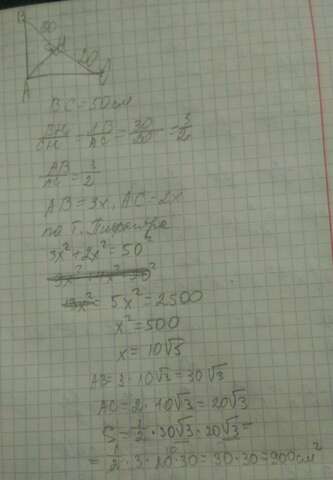 B
30
H
20
A
C
BC = 50 см
BH/CH = AB/AC = 30/20 = 3/2
AB/AC = 3/2
AB = 3x, AC = 2x
по т. Пифагора
3x² + 2x² = 50²
5x² = 2500
x² = 500
x = 10√5
AB = 3 · 10√5 = 30√5
AC = 2 · 10√5 = 20√5
S = 1/2 · 30√3 · 20√3 =
= 1/2 · 3 · 10 · 30 = 30 · 30 = 900 см²